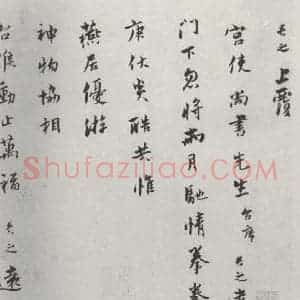 上覆
宫使尚書先生台席
門下忽將兩月馳情拳拳
庚伏炎酷共惟
燕居優游
神物協相
台候動止萬福
遠
Shufaziliao.com